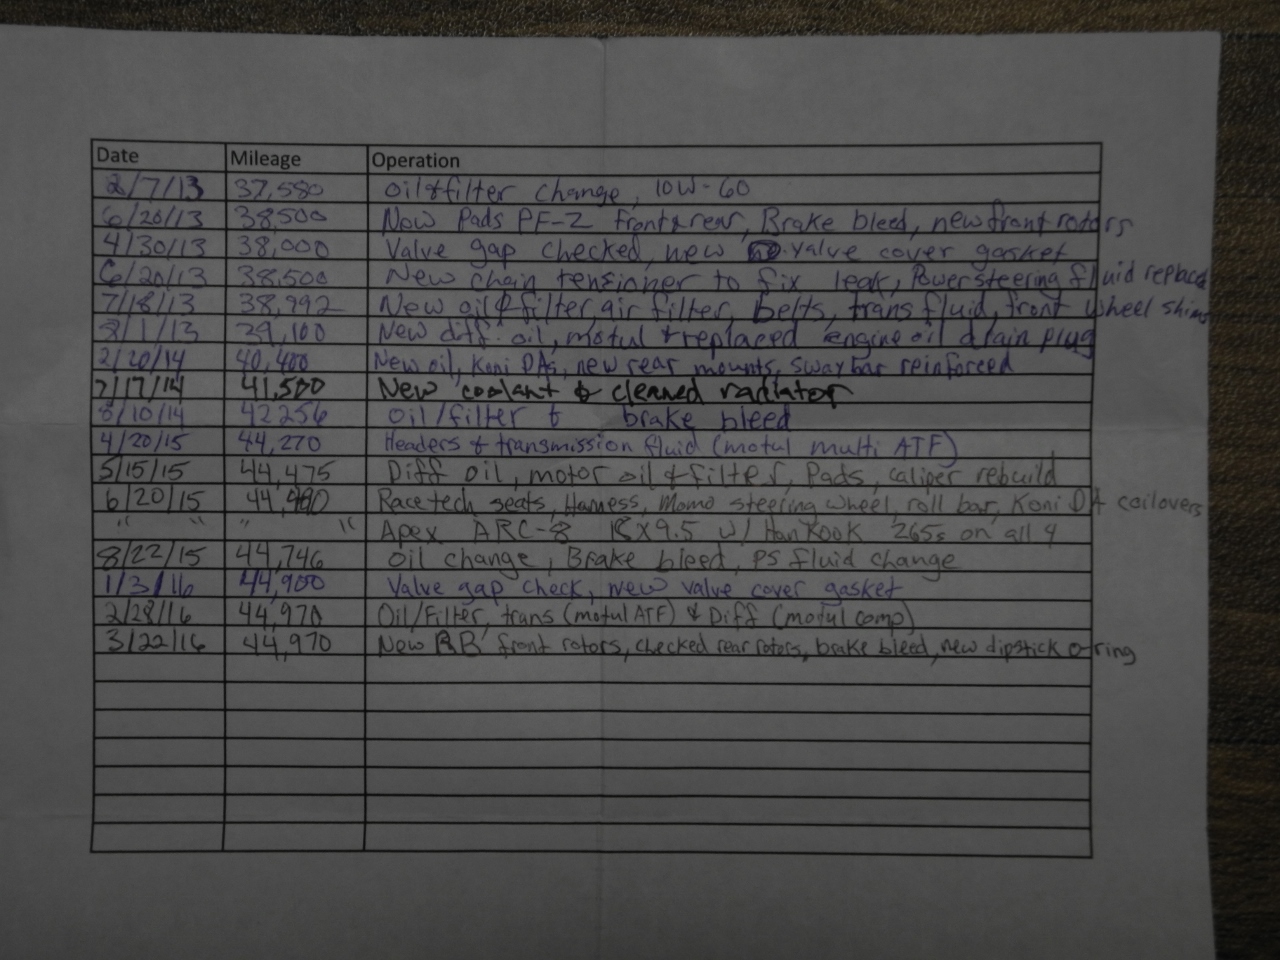 Date Mileage Operation
2/7/13 37,580 Oil & filter change, 10W-60
6/20/13 38,500 New Pads PF-Z front & rear, Brake bleed, new front rotors
4/30/13 38,000 Valve gap checked, new valve cover gasket
6/20/13 38,500 New chain tensioner to fix leak, Power steering fluid replaced
7/18/13 38,992 New oil & filter, air filter, belts, trans fluid, front wheel shims
8/1/13 39,100 New diff. oil, motul & replaced engine oil drain plug
2/20/14 40,400 New oil, Koni DAs, new rear mounts, swaybar reinforced
7/17/14 41,500 New coolant & cleaned radiator
8/10/14 42256 Oil/filter & brake bleed
4/20/15 44,270 Headers & transmission fluid (motul multi ATF)
5/15/15 44,475 Diff oil, motor oil & filter, Pads, caliper rebuild
6/20/15 44,490 Racetech seats, Harness, Momo steering wheel, roll bar, Koni DA coilovers
" " " " Apex ARC-8 18X9.5 w/ HanKook 265s on all 4
8/22/15 44,746 Oil change, Brake bleed, PS fluid change
1/3/16 44,900 Valve gap check, new valve cover gasket
2/28/16 44,970 Oil/Filter, trans (motul ATF) & Diff (motul comp)
3/22/16 44,970 New RB front rotors, checked rear rotors, brake bleed, new dipstick o-ring